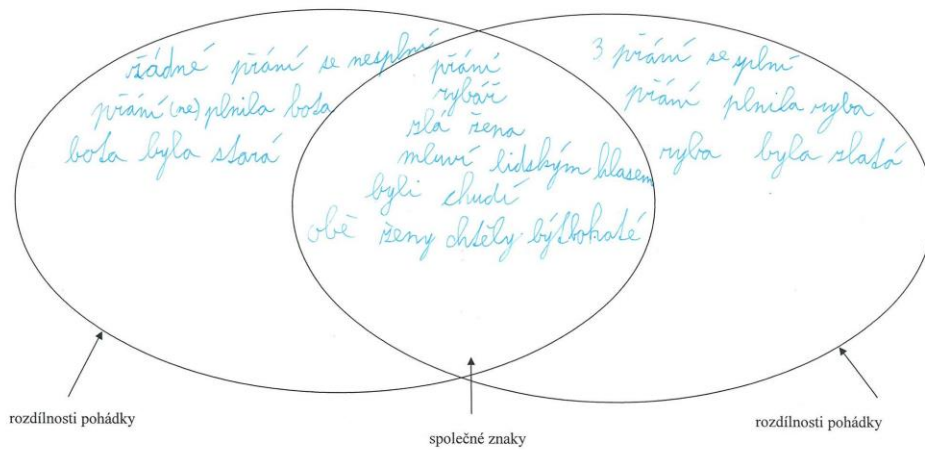 žádné přání se nesplní
přání (ne) plnila bota
bota byla stará
přání
rybář
zlá žena
mluví lidským hlasem
byli chudí
obě ženy chtěly být bohaté
3 přání se splní
přání plnila ryba
ryba byla zlatá
rozdílnosti pohádky
společné znaky
rozdílnosti pohádky